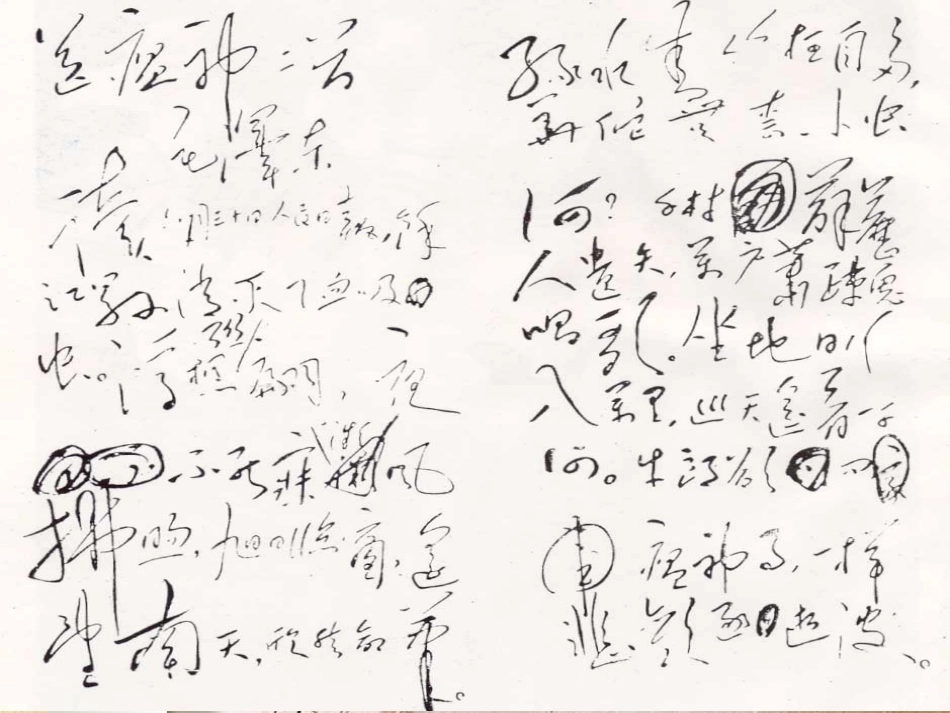 送瘟神二首
毛澤东
讀六月三十日人民日報,餘
江縣消灭了血吸
虫。浮想聯翩,夜
不能寐 微風
拂煦,旭日临窗,遥
望南天,欣然命筆。
綠水青山枉自多,
華佗無奈小虫
何?千村薜荔
人遺矢,萬户蕭疎鬼
唱歌。坐地日行
八萬里,巡天遥看一千
河。牛郎欲问
瘟神事,一样
悲歡逐逝波。